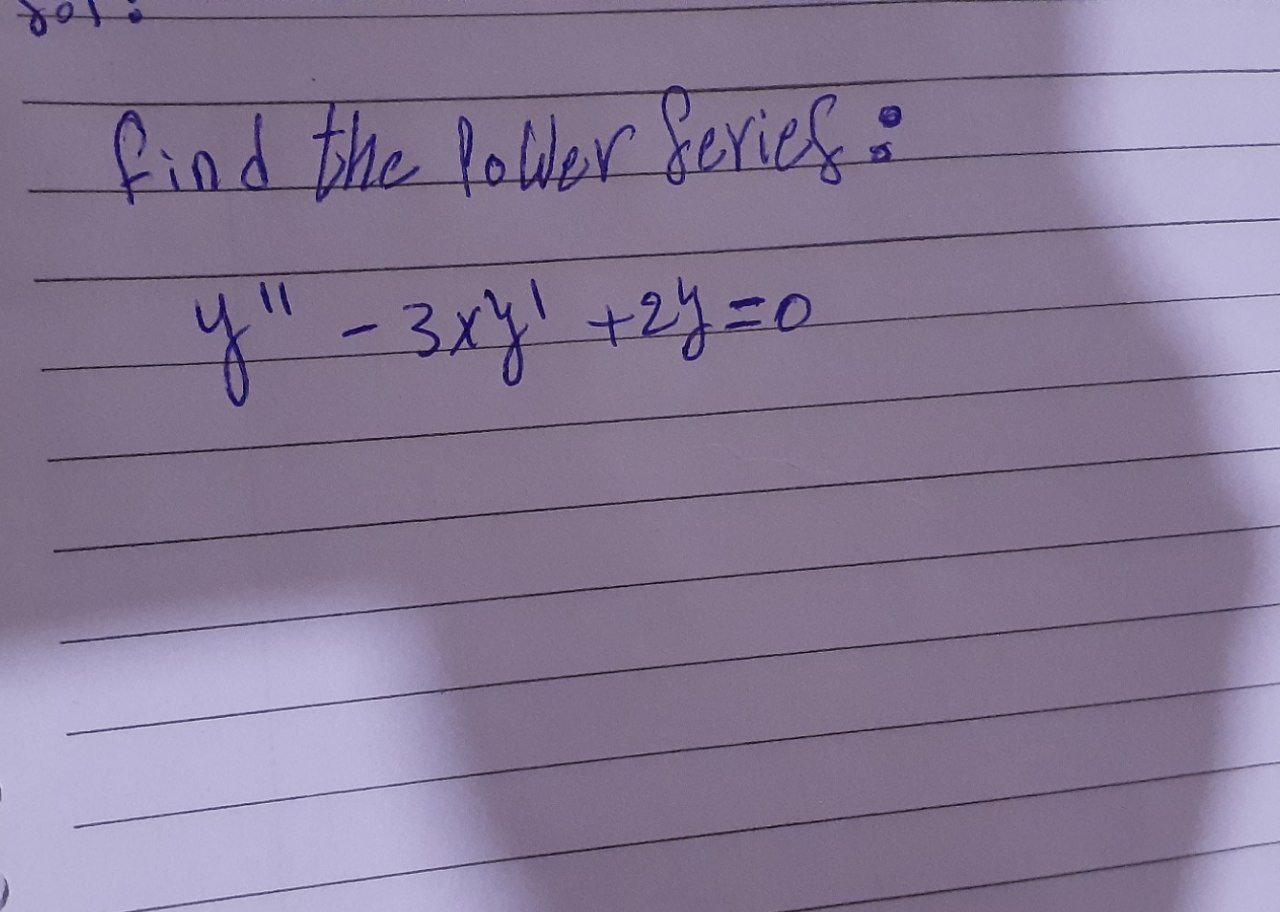 find the Power Series :
y'' - 3xy' + 2y = 0